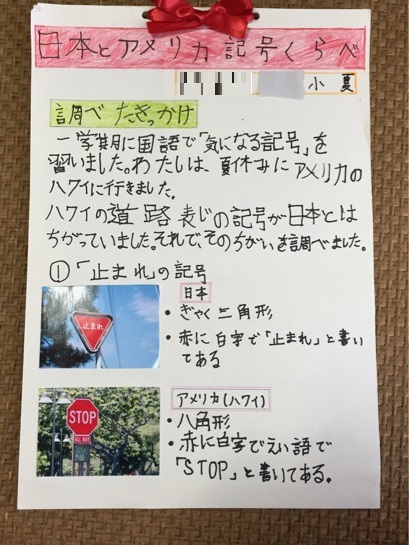 日本とアメリカ記号くらべ
小 夏
調べたきっかけ
一学期に国語で「気になる記号」を
習いました。わたしは、夏休みにアメリカの
ハワイに行きました。
ハワイの道路表じの記号が日本とは
ちがっていました。それで、そのちがいを調べました。
①「止まれ」の記号
日本
・ぎゃく三角形
・赤に白字で「止まれ」と書い
てある
止まれ
アメリカ(ハワイ)
・八角形
・赤に白字でえい語で
「STOP」と書いてある。
STOP
ALL WAY